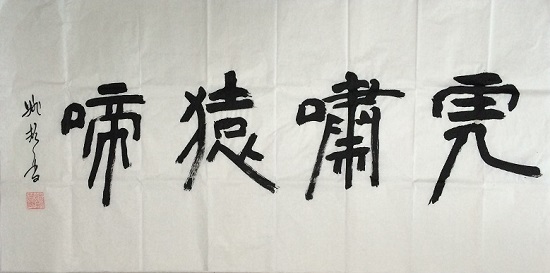 虎嘯猿啼